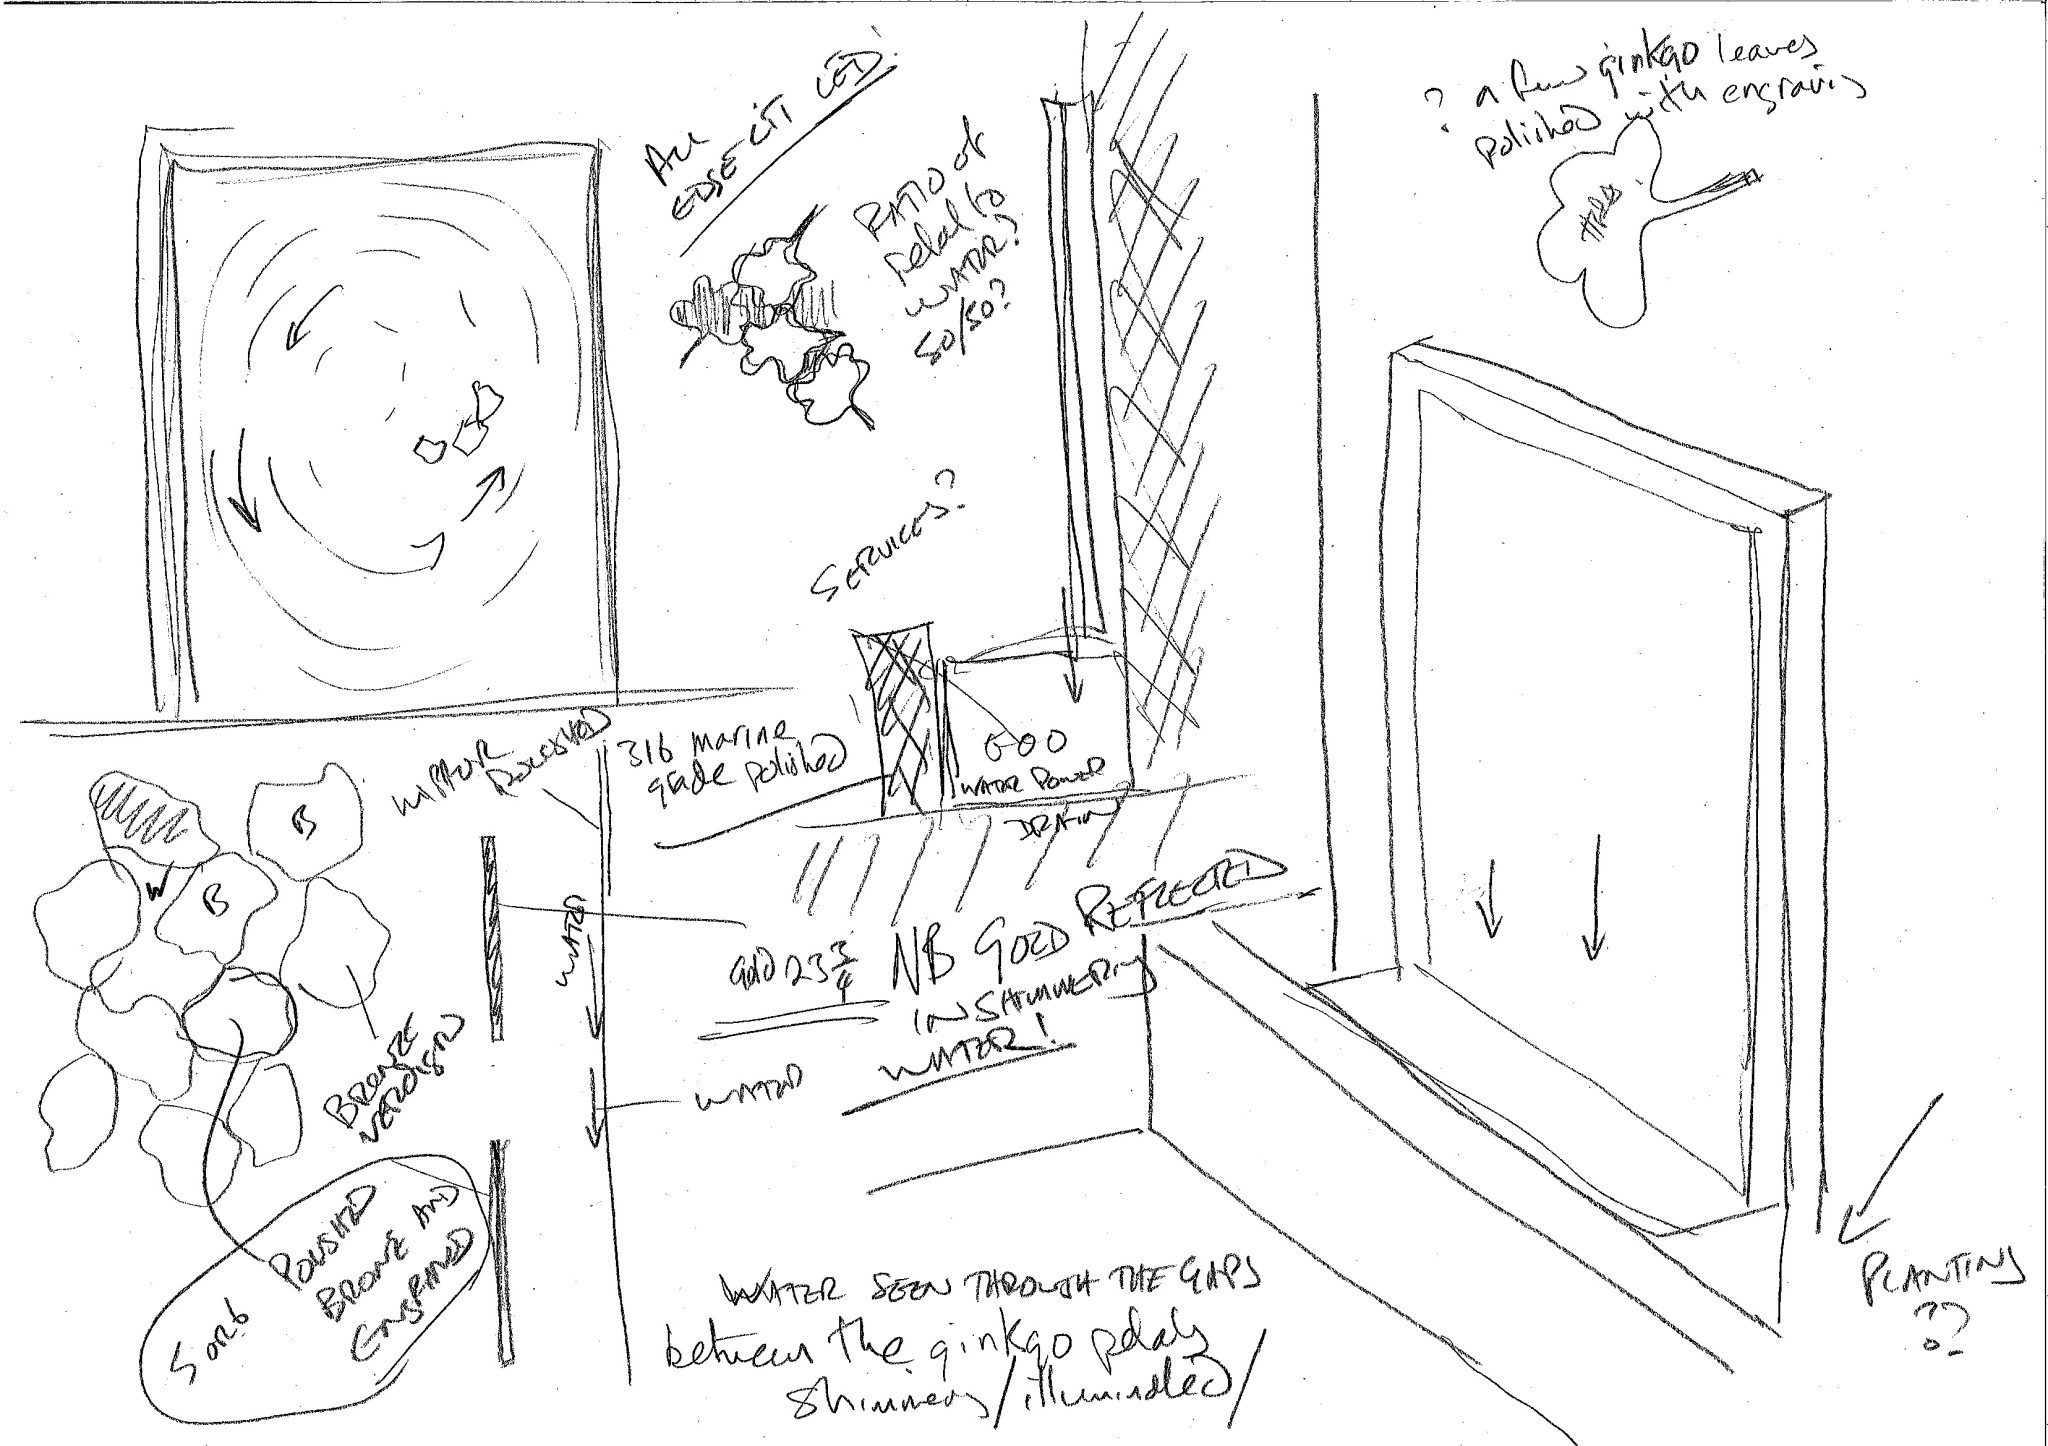 ALL
EDGE-LIT LED!
RATIO of
petal to
WATER?
50/50?
? a few ginkgo leaves
polished with engraving
SERVICES?
MIRROR
POLISHED
316 marine
grade polished
WATER POWER
DRAIN
B
W
B
WATER
Gold 23 3/4
NB GOLD REFLECTED
IN SHIMMERING
WATER!
WATER
BRONZE
VERDIGRIS
5 OR 6
POLISHED
BRONZE AND
ENGRAVED
WATER SEEN THROUGH THE GAPS
between the ginkgo petals
shimmers/illuminated/
PLANTING
??